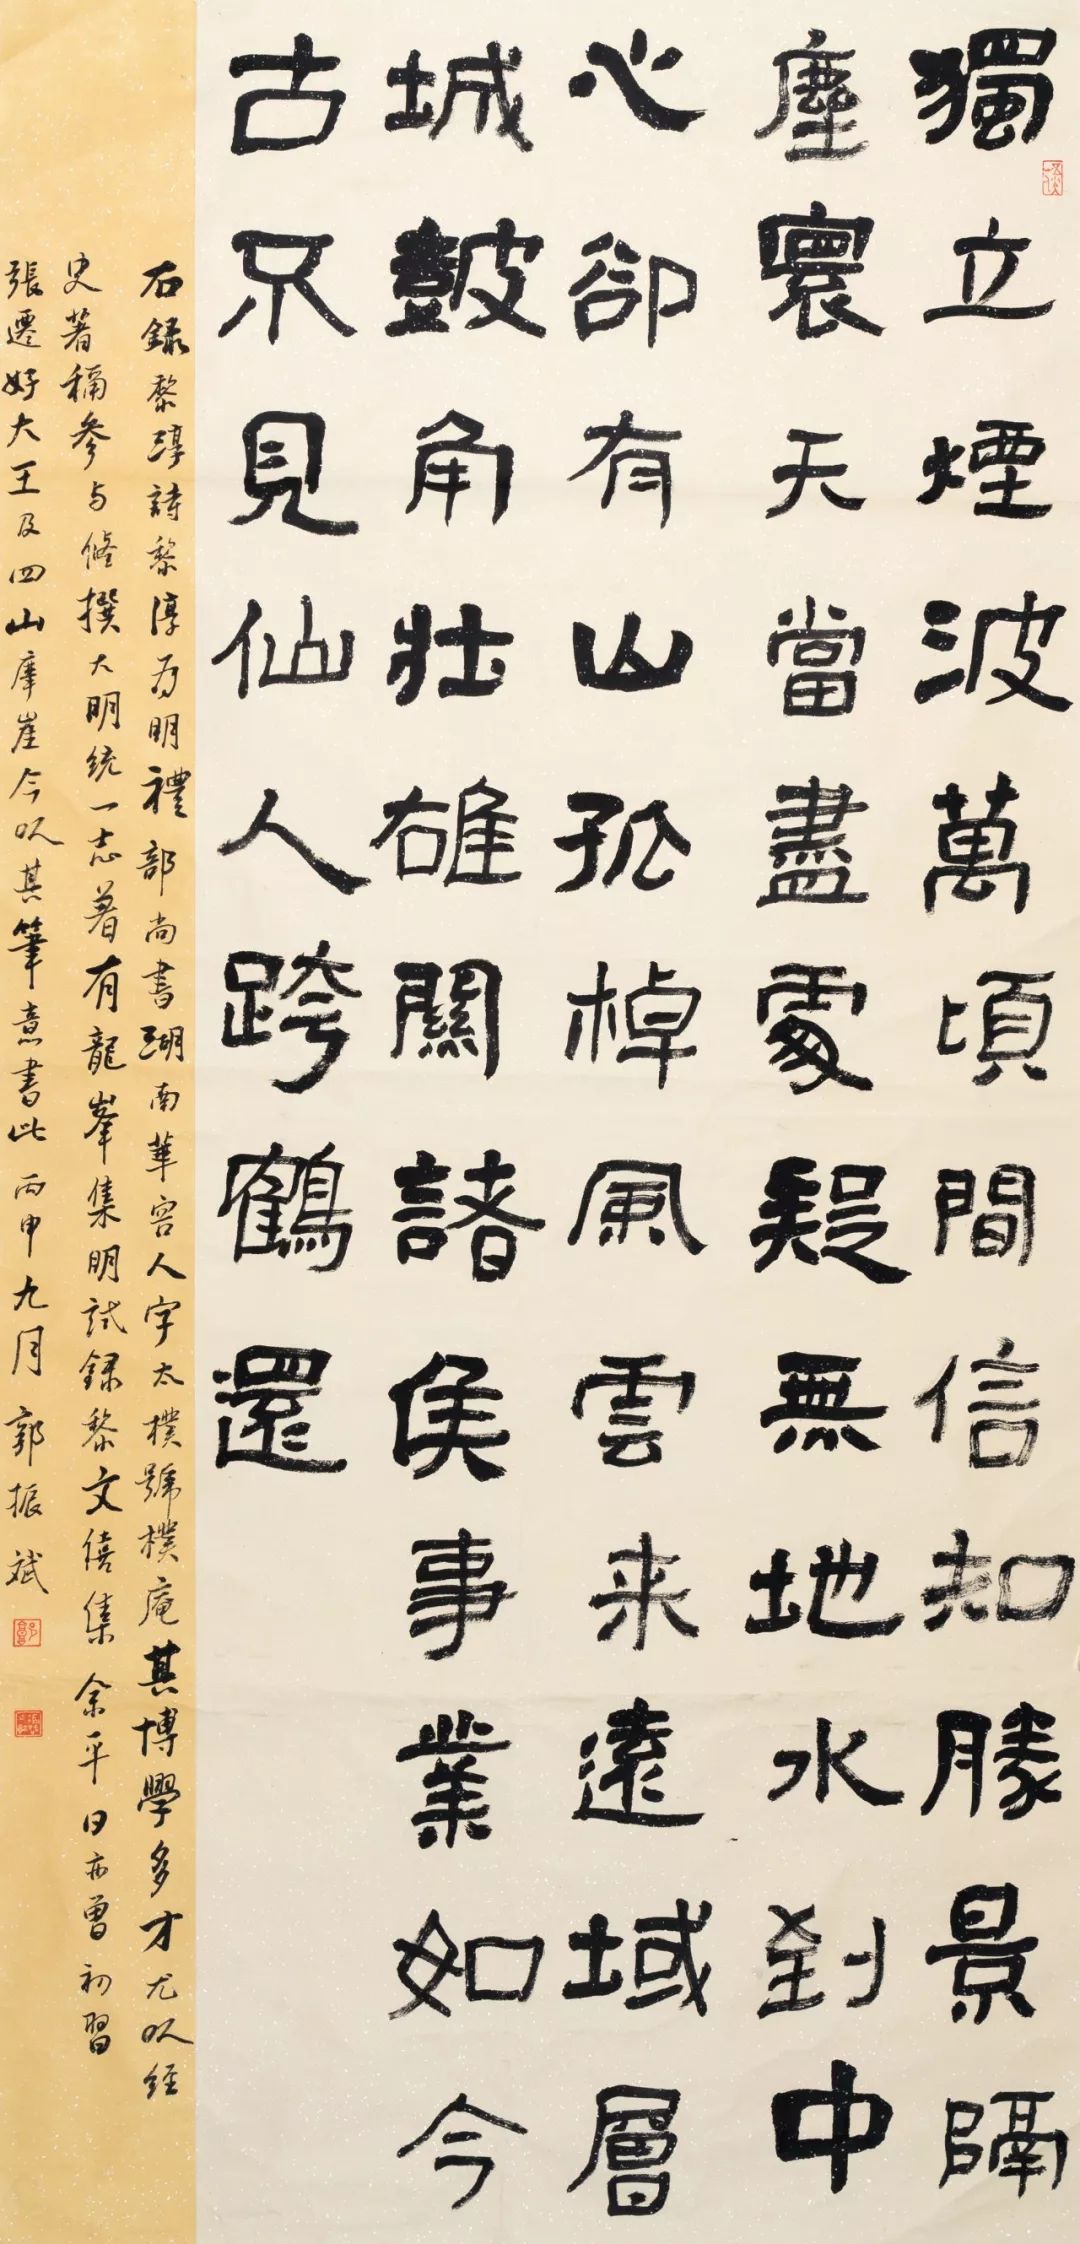 獨立煙波萬頃間信知勝景隔
塵寰天當盡處疑無地水到中
心卻有山孤棹風雲来遠域層
城鼓角壯雄關諸侯事業如今
古不見仙人跨鶴還
右錄黎淳詩黎淳为明禮部尚書湖南華容人字太樸號樸庵其博學多才尤以經
史著稱參与修撰大明统一志着有龍峯集明試録黎文僖集余平日亦曾初習
張遷好大王及四山摩崖今以其筆意書此丙申九月郭振斌